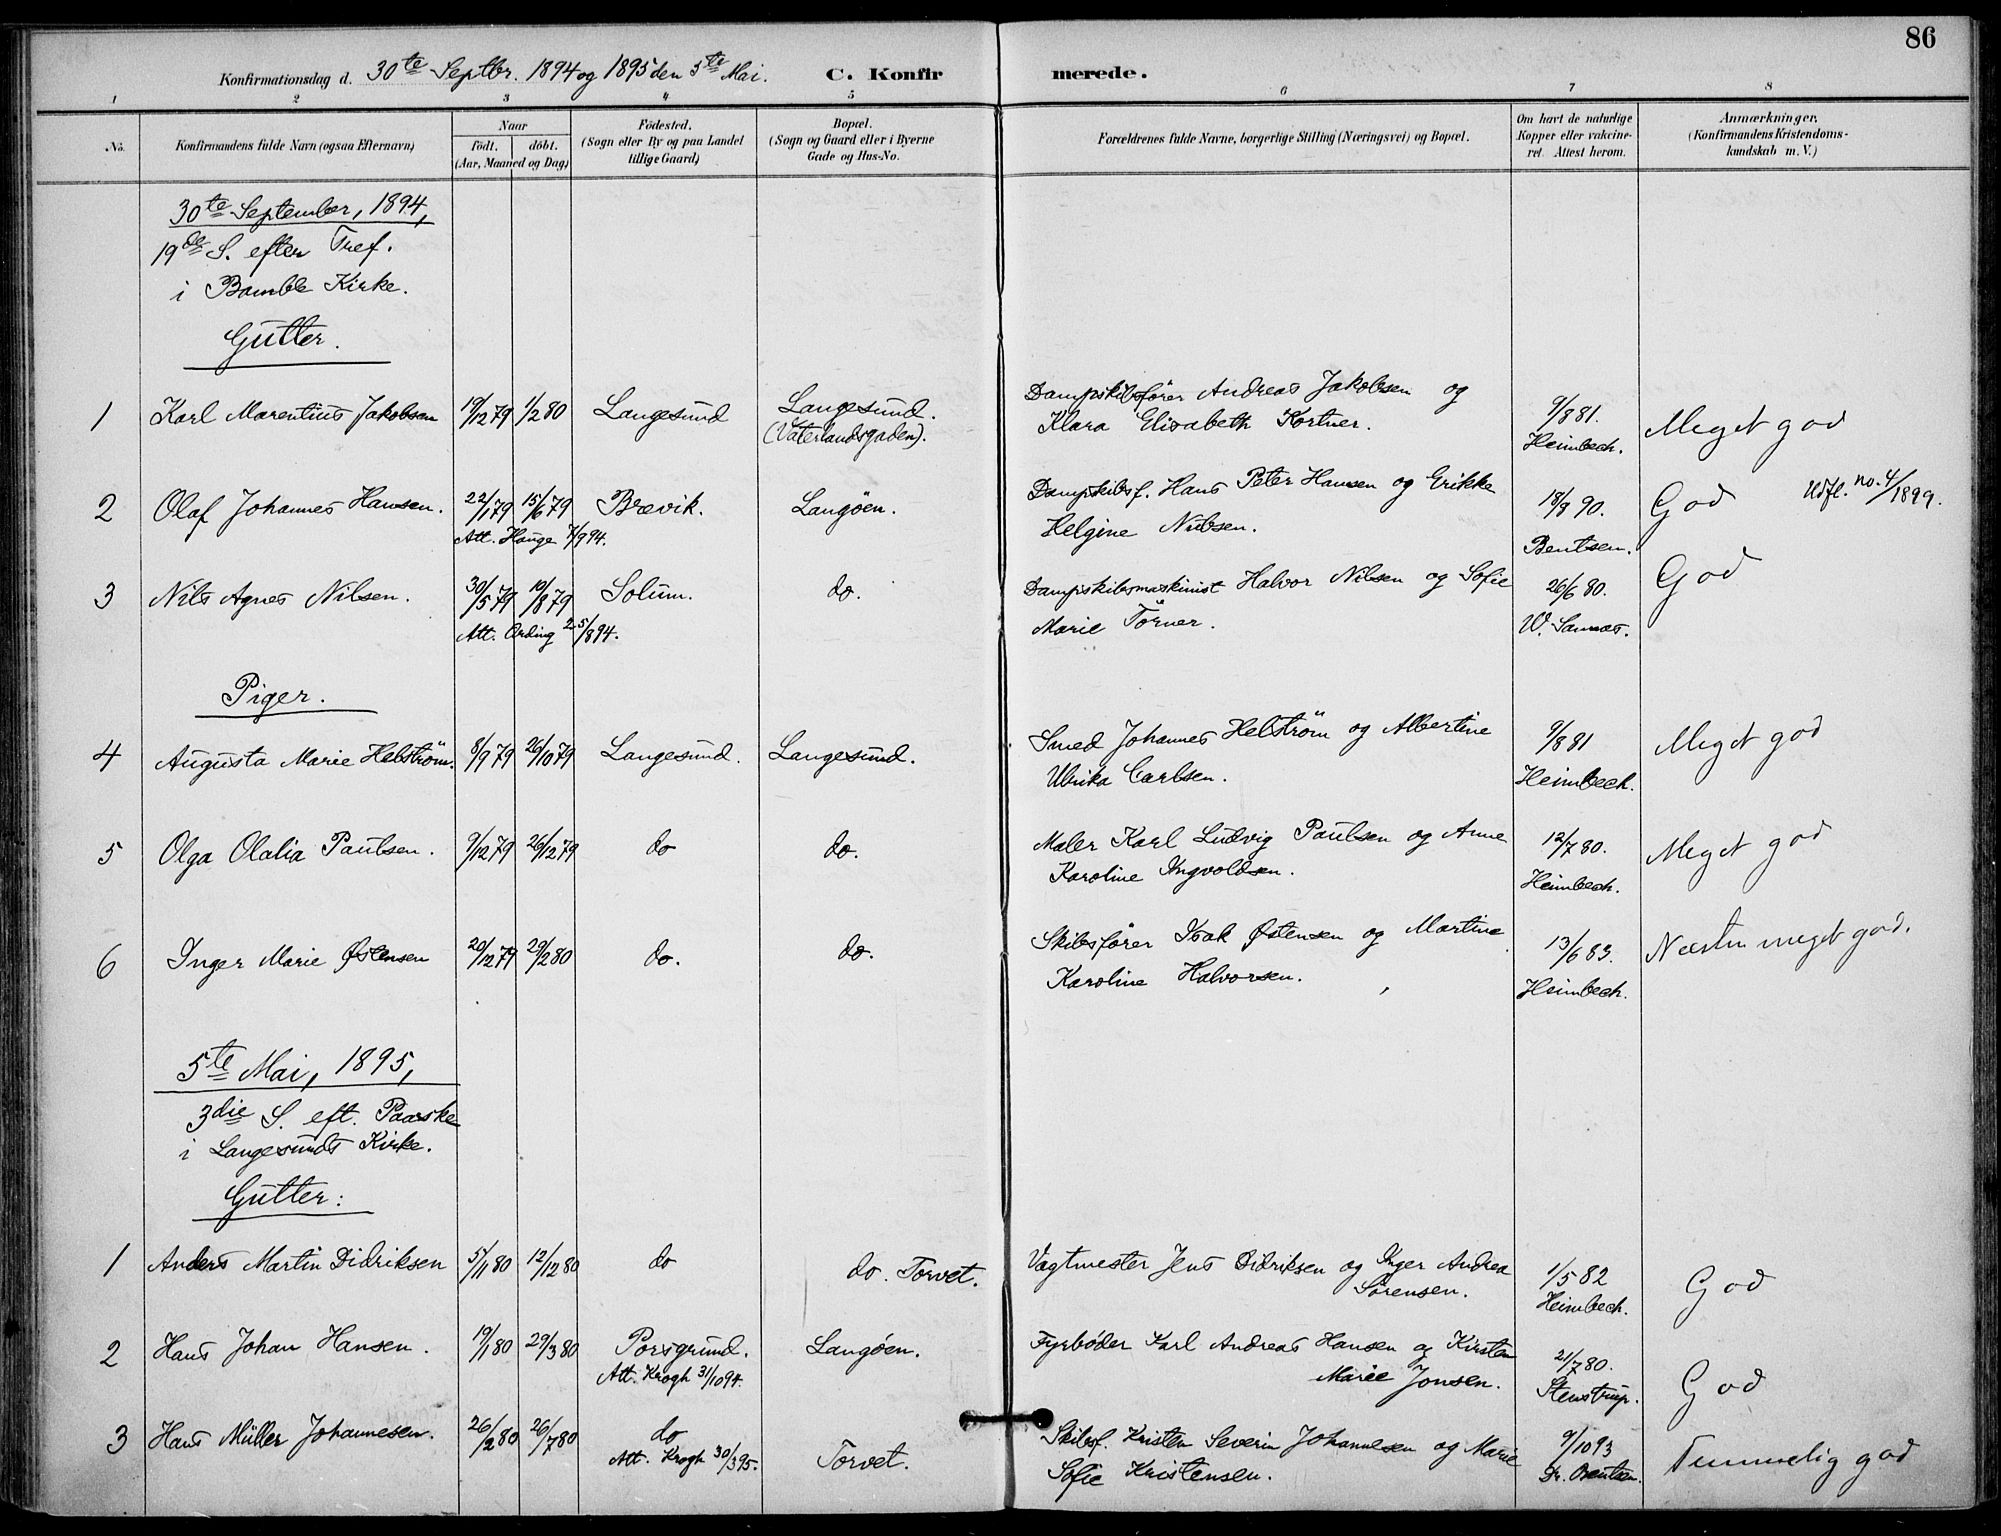 86
Konfirmationsdag d. 30te Septbr. 1894 og 1895 den 5te Mai. C. Konfirmerede.
1 2 3 4 5 6 7 8
No.
Konfirmandens fulde Navn (ogsaa Efternavn)
Naar
födt. döbt.
(Aar, Maaned og Dag)
Födested.
(Sogn eller By og paa Landet
tillige Gaard)
Bopæl.
(Sogn og Gaard eller i Byerne
Gade og Hus-No.
Forældrenes fulde Navne, borgerlige Stilling (Næringsvei) og Bopæl.
Om havt de naturlige
Kopper eller vakcine-
ret. Attest herom.
Anmærkninger.
(Konfirmandens Kristendoms-
kundskab m. V.)
30te September, 1894,
19de S. efter Tref.
i Bamble Kirke.
Gutter.
1 Karl Marentius Jakobsen 19/12 79 1/2 80 Langesund Langesund.
(Vaterlandsgaden).
Dampskibsfører Andreas Jakobsen og
Klara Elisabeth Kortner.
9/8 81.
Heimbech.
Meget god
2 Olaf Johannes Hansen. 22/1 79 15/6 79 Brevik. Langöen.
Att. Hauge 7/9 94.
Dampskibsf. Hans Peter Hansen og Erikke
Helgine Nilsen.
18/8 90.
Bentsen.
God Udfl. no. 4/1899.
3 Nils Agnes Nilsen. 30/5 79 19/8 79 Solum. do.
Att. Ording 25/8 94.
Dampskibsmaskinist Halvor Nilsen og Sofie
Marie Törner.
26/6 80.
W. Sannæs.
God
Piger.
4 Augusta Marie Helström. 8/9 79 26/10 79 Langesund. Langesund.
Smed Johannes Helström og Albertine
Ulrika Carlsen.
9/8 81
Heimbech.
Meget god
5 Olga Olalia Paulsen. 9/12 79 26/12 79 do do.
Maler Karl Ludvig Paulsen og Anne
Karoline Ingvoldsen.
12/7 80.
Heimbech.
Meget god
6 Inger Marie Østensen 20/12 79 29/2 80 do. do.
Skibsfører Isak Østensen og Martine
Karoline Halvorsen.
13/6 83.
Heimbech.
Næsten meget god.
5te Mai, 1895,
3die S. eft. Paaske
i Langesunds Kirke.
Gutter:
1 Anders Martin Didriksen 5/11 80 12/12 80 do do. Torvet.
Vagtmester Jens Didriksen og Inger Andrea
Sørensen.
1/5 82
Heimbech.
God
2 Hans Johan Hansen. 19/1 80 29/3 80 Porsgrund. Langöen.
Att. Krogh 31/10 94.
Fyrbøder Karl Andreas Hansen og Kirsten
Marie Jonsen.
21/7 80.
Stenstrup.
God
3 Hans Müller Johannesen. 26/2 80 26/7 80 do Torvet.
Att. Krogh 30/3 95.
Skibsf. Kristen Severin Johannesen og Marie
Sofie Kristensen.
9/10 93
Dr. Bentsen.
Temmelig god